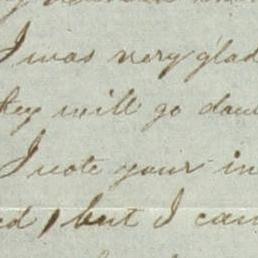 I was very glad
they will go dow
I note your in
ed, but I can